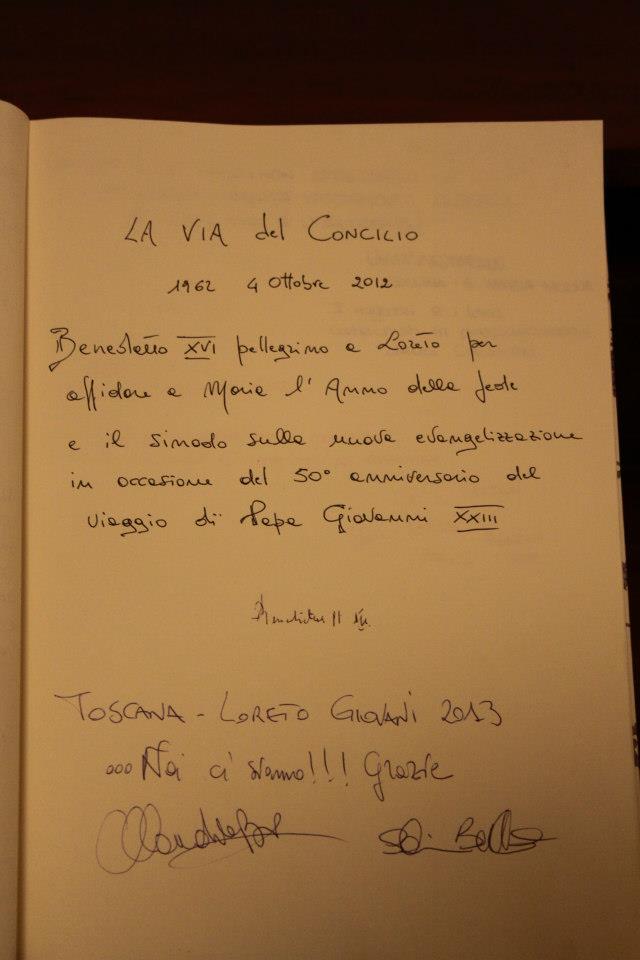 LA VIA del CONCILIO
1962 4 Ottobre 2012
Benedetto XVI pellegrino a Loreto per
affidare a Maria l'Anno della fede
e il sinodo sulla nuova evangelizzazione
in occasione del 50° anniversario del
viaggio di Papa Giovanni XXIII
Benedictus PP XVI
TOSCANA - LORETO GIOVANI 2013
ooo Noi ci siamo!!! Grazie